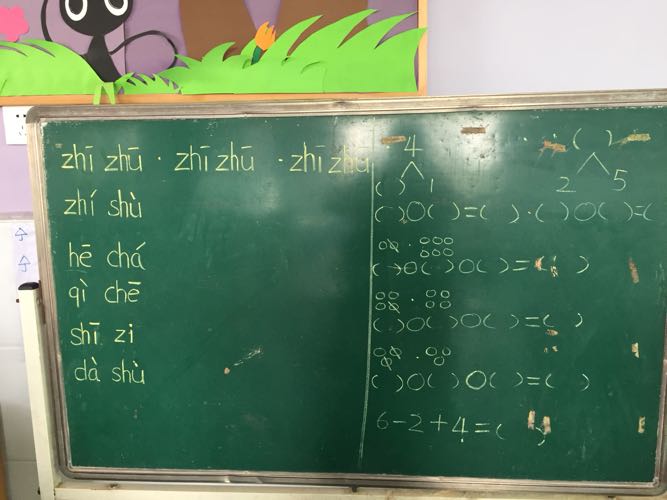 zhī zhū · zhī zhū · zhī zhū
zhí shù
hē chá
qì chē
shī zi
dà shù
4
( ) 1
( )
2 5
( )○( )=( ) · ( )○( )=(
( )○( )○( )=( )
( )○( )○( )=( )
( )○( )○( )=( )
6-2+4=( )